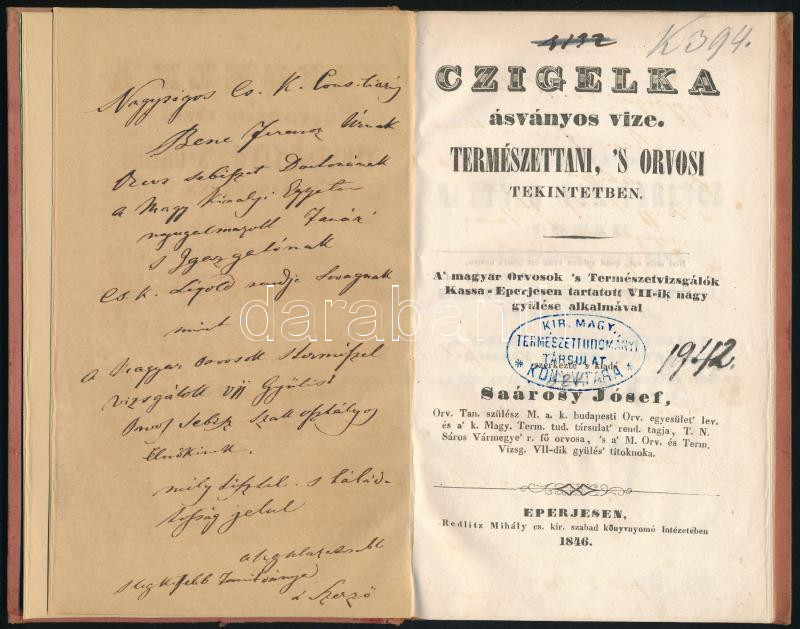 Nagyságos Cs. K. Consiliárius
Bene Ferencz Úrnak
Orvos sebészet Doctorának
A Magy Királyi Egyetem
nyugalmazott Tanár
s Igazgatónak
Cs. K. Lipold rendje lovagnak
mint
A Magyar orvosok s termész
vizsgálók VII Gyűlési
Orvos Sebész Szak osztályos
Elnökének
mély tisztel. s hálád-
tosság jeléül
a legalázatosabb
s legkisebb Tanítványa
a Szerző
4132
K394.
CZIGELKA
ásványos vize.
TERMÉSZETTANI, 'S ORVOSI
TEKINTETBEN.
A' magyar Orvosok 's Természetvizsgálók
Kassa-Eperjesen tartatott VII-ik nagy
gyülése alkalmával
KIR. MAGY.
TERMÉSZETTUDOMÁNYI
TÁRSULAT
* KÖNYVTÁRA *
1942.
szerkezte 's kiadá
Saárosy Jósef,
Orv. Tan. szülész M. a. k. budapesti Orv. egyesület' lev.
és a' k. Magy. Term. tud. társulat' rend. tagja, T. N.
Sáros Vármegye' r. fő orvosa, 's a' M. Orv. és Term.
Vizsg. VII-dik gyülés' titoknoka.
EPERJESEN,
Redlitz Mihály cs. kir. szabad könyvnyomó Intézetében
1846.
darabanth